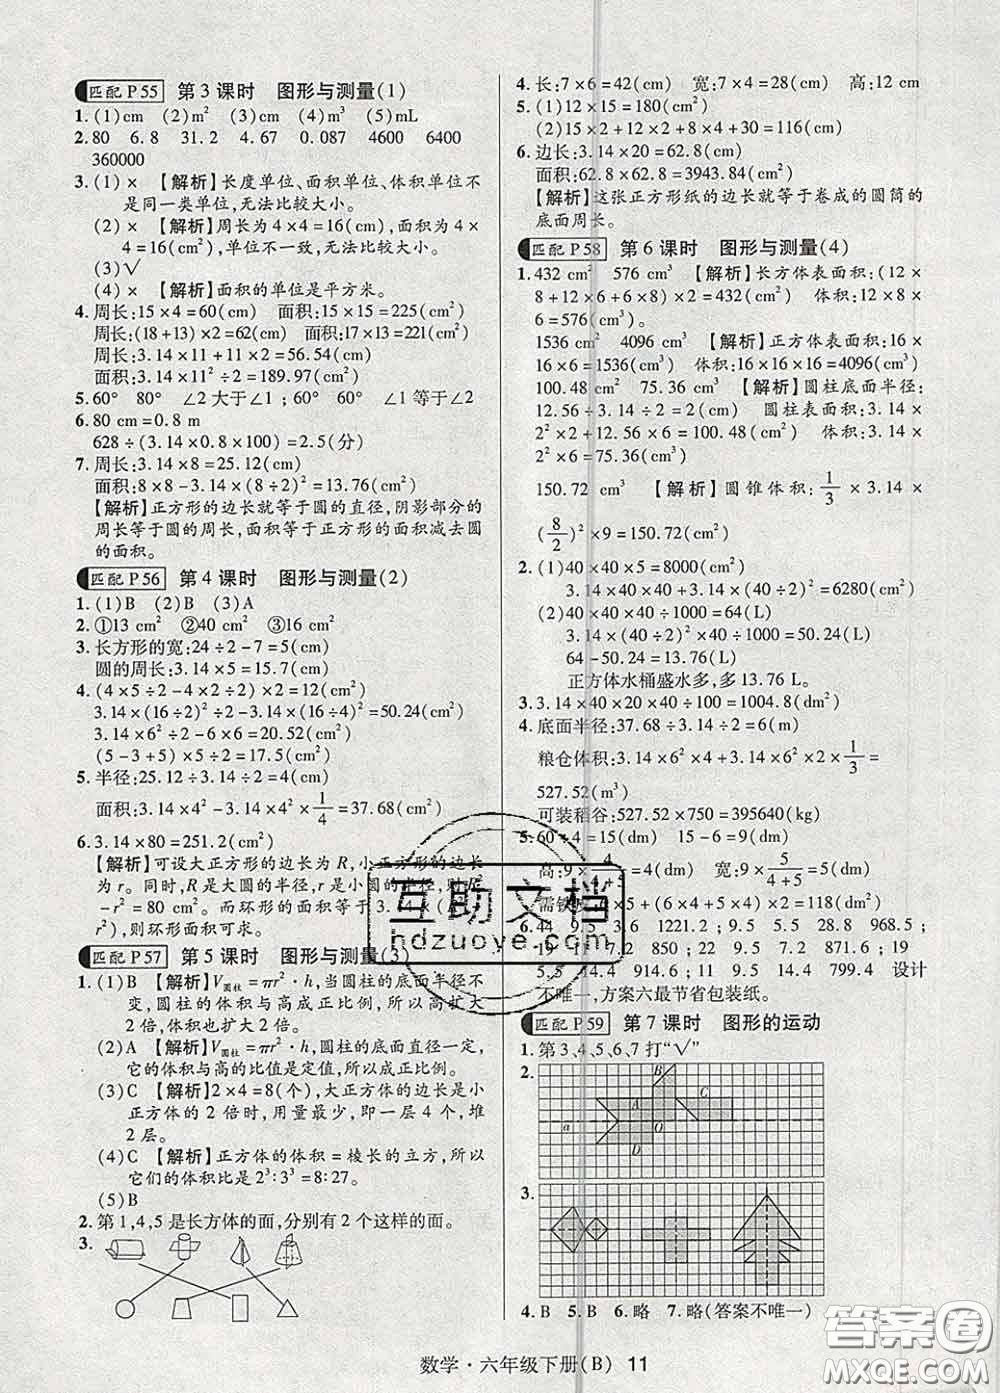 匹配 P55 第3课时 图形与测量(1)
1.(1)cm (2)m² (3)cm (4)m³ (5)mL
2.80 6.8 31.2 4.67 0.087 4600 6400
360000
3.(1)× 【解析】长度单位、面积单位、体积单位不
是同一类单位,无法比较大小。
(2)× 【解析】周长为4×4=16(cm),面积为4
×4=16(cm²),单位不一致,无法比较大小。
(3)√
(4)× 【解析】面积的单位是平方米。
4.周长:15×4=60(cm) 面积:15×15=225(cm²)
周长:(18+13)×2=62(cm) 面积:17×13=221(cm²)
周长:3.14×11+11×2=56.54(cm)
面积:3.14×11²÷2=189.97(cm²)
5.60° 80° ∠2大于∠1;60° 60° ∠1等于∠2
6.80 cm=0.8 m
628÷(3.14×0.8×100)=2.5(分)
7.周长:3.14×8=25.12(cm)
面积:8×8-3.14×(8÷2)²=13.76(cm²)
【解析】正方形的边长就等于圆的直径,阴影部分的
周长等于圆的周长,面积等于正方形的面积减去圆
的面积。
匹配 P56 第4课时 图形与测量(2)
1.(1)B (2)B (3)A
2.①13 cm² ②40 cm² ③16 cm²
3.长方形的宽:24÷2-7=5(cm)
圆的周长:3.14×5=15.7(cm)
4.(4×5÷2-4×2÷2)×2=12(cm²)
3.14×(16÷2)²÷2-3.14×(16÷4)²=50.24(cm²)
3.14×6²÷2=56.52(cm²)
(5-3+5)×5÷2=17.5(cm²)
5.半径:25.12÷3.14÷2=4(cm)
面积:3.14×4²-3.14×4²×1/4=37.68(cm²)
6.3.14×80=251.2(cm²)
【解析】可设大正方形的边长为R,小正方形的边长
为r。同时,R是大圆的半径,r是小圆的半径,则R²
-r²=80 cm²。而环形的面积等于3.14×(R²-
r²),则环形面积可求。
匹配 P57 第5课时 图形与测量(3)
1.(1)B 【解析】V圆柱=πr²·h,当圆柱的底面半径不
变,圆柱的体积与高成正比例,所以高扩大
2倍,体积也扩大2倍。
(2)A 【解析】V圆柱=πr²·h,圆柱的底面直径一定,
它的体积与高的比值是定值,所以成正比例。
(3)C 【解析】2×4=8(个),大正方体的边长是小
正方体的2倍时,用量最少,即一层4个,堆
2层。
(4)C 【解析】正方体的体积=棱长的立方,所以它
们的体积比是2³:3³=8:27。
(5)B
2.第1,4,5是长方体的面,分别有2个这样的面。
3.
4.长:7×6=42(cm) 宽:7×4=28(cm) 高:12 cm
5.(1)12×15=180(cm²)
(2)15×2+12×2+8×4+30=116(cm)
6.边长:3.14×20=62.8(cm)
面积:62.8×62.8=3943.84(cm²)
【解析】这张正方形纸的边长就等于卷成的圆筒的
底面周长。
匹配 P58 第6课时 图形与测量(4)
1.432 cm² 576 cm³ 【解析】长方体表面积:(12×
8+12×6+8×6)×2=432(cm²) 体积:12×8×
6=576(cm³)。
1536 cm² 4096 cm³ 【解析】正方体表面积:16×
16×6=1536(cm²) 体积:16×16×16=4096(cm³)
100.48 cm² 75.36 cm³ 【解析】圆柱底面半径:
12.56÷3.14÷2=2(cm) 圆柱表面积:3.14×
2²×2+12.56×6=100.48(cm²) 体积:3.14×
2²×6=75.36(cm³)
150.72 cm³ 【解析】圆锥体积:1/3×3.14×
(8/2)²×9=150.72(cm²)
2.(1)40×40×5=8000(cm²)
3.14×40×40+3.14×(40÷2)²=6280(cm²)
(2)40×40×40÷1000=64(L)
3.14×(40÷2)²×40÷1000=50.24(L)
64-50.24=13.76(L)
正方体水桶盛水多,多13.76 L。
3.3.14×40×20×40÷100=1004.8(dm²)
4.底面半径:37.68÷3.14÷2=6(m)
粮仓体积:3.14×6²×4+3.14×6²×2×1/3=
527.52(m³)
可装稻谷:527.52×750=395640(kg)
5.60÷4=15(dm) 15-6=9(dm)
高:9×4/4+5=4(dm) 宽:9×5/4+5=5(dm)
需铁皮:6×5+(6×4+5×4)×2=118(dm²)
6.44 9.5 36 1221.2; 9.5 28.8 968.5;
19 11 7.2 850; 22 11 14.4 942; 19
5.5 14.4 914.6; 11 11 14.4 799.4 设计
不唯一,方案六最节省包装纸。
匹配 P59 第7课时 图形的运动
1.第3、4、5、6、7打“√”
2.
B
A C
a O
D
3.
4.B 5.B 6.略 7.略(答案不唯一)
数学·六年级下册(B) 11
互助文档
hdzuoye.com
答案圈
MXQE.COM